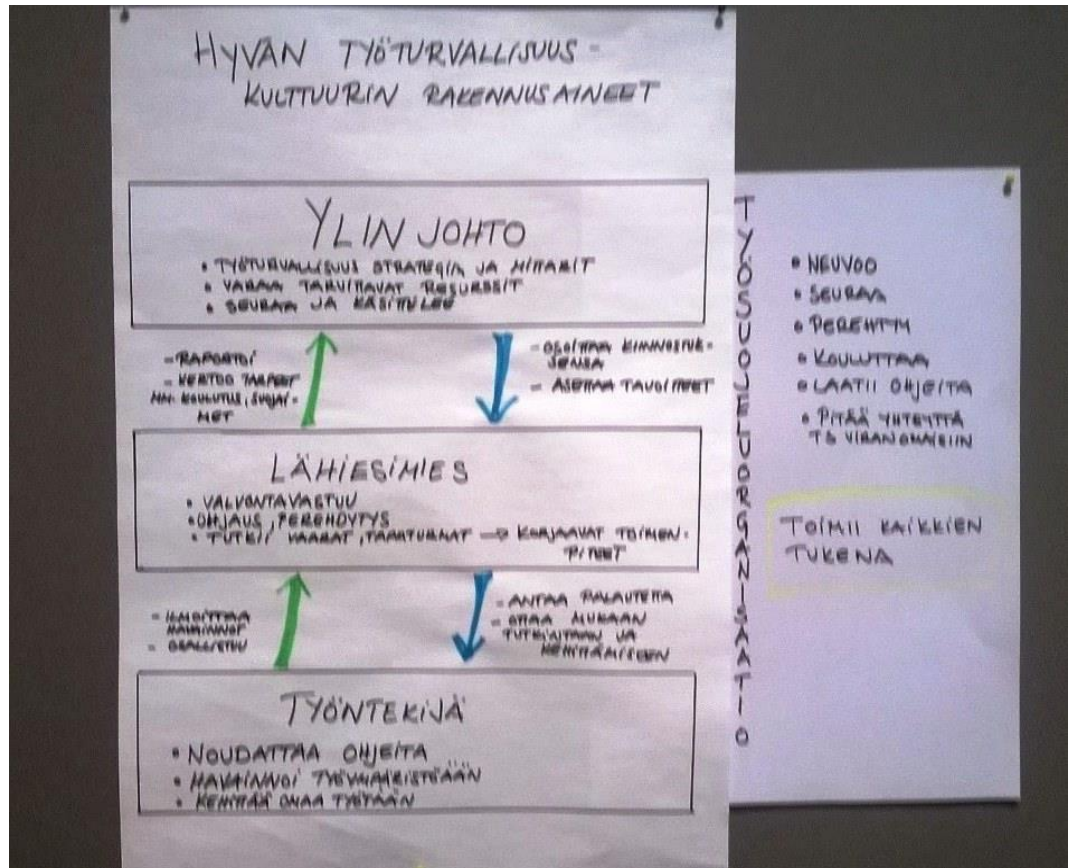 HYVÄN TYÖTURVALLISUUS-
KULTTUURIN RAKENNUSAINEET
YLIN JOHTO
• TYÖTURVALLISUUS STRATEGIA JA MITTARIT
• VARAA TARVITTAVAT RESURSSIT
• SEURAA JA KÄSITTELEE
- RAPORTOI
- KERTOO TARPEET
MM. KOULUTUS, SUOJAI-
MET
- OSOITTAA KIINNOSTUK-
SENSA
- ASETTAA TAVOITTEET
LÄHIESIMIES
• VALVONTAVASTUU
• OHJAUS, PEREHDYTYS
• TUTKII VAARAT, TAPATURMAT → KORJAAVAT TOIMEN-
PITEET
- ILMOITTAA
HAVAINNOT
- OSALLISTUU
- ANTAA PALAUTETTA
- OTTAA MUKAAN
TUTKINTAAN JA
KEHITTÄMISEEN
TYÖNTEKIJÄ
• NOUDATTAA OHJEITA
• HAVAINNOI TYÖYMPÄRISTÖÄÄN
• KEHITTÄÄ OMAA TYÖTÄÄN
TYÖSUOJELUORGANISAATIO
• NEUVOO
• SEURAA
• PEREHTYY
• KOULUTTAA
• LAATII OHJEITA
• PITÄÄ YHTEYTTÄ
TS VIRANOMAISIIN
TOIMII KAIKKIEN
TUKENA